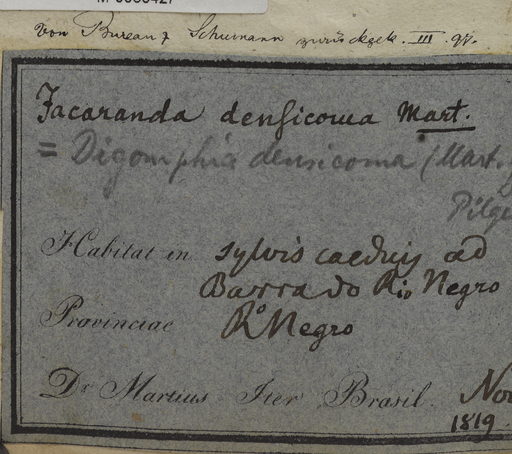 M-0086427
von Bureau & Schumann zurückgek. III. 97.
Jacaranda densicoma Mart.
= Digomphia densicoma (Mart.)
Pilge
Habitat in sylvis caeduis ad
Barra do Rio Negro
Provinciae Ro Negro
Dr Martius Iter Brasil. Nov
1819.